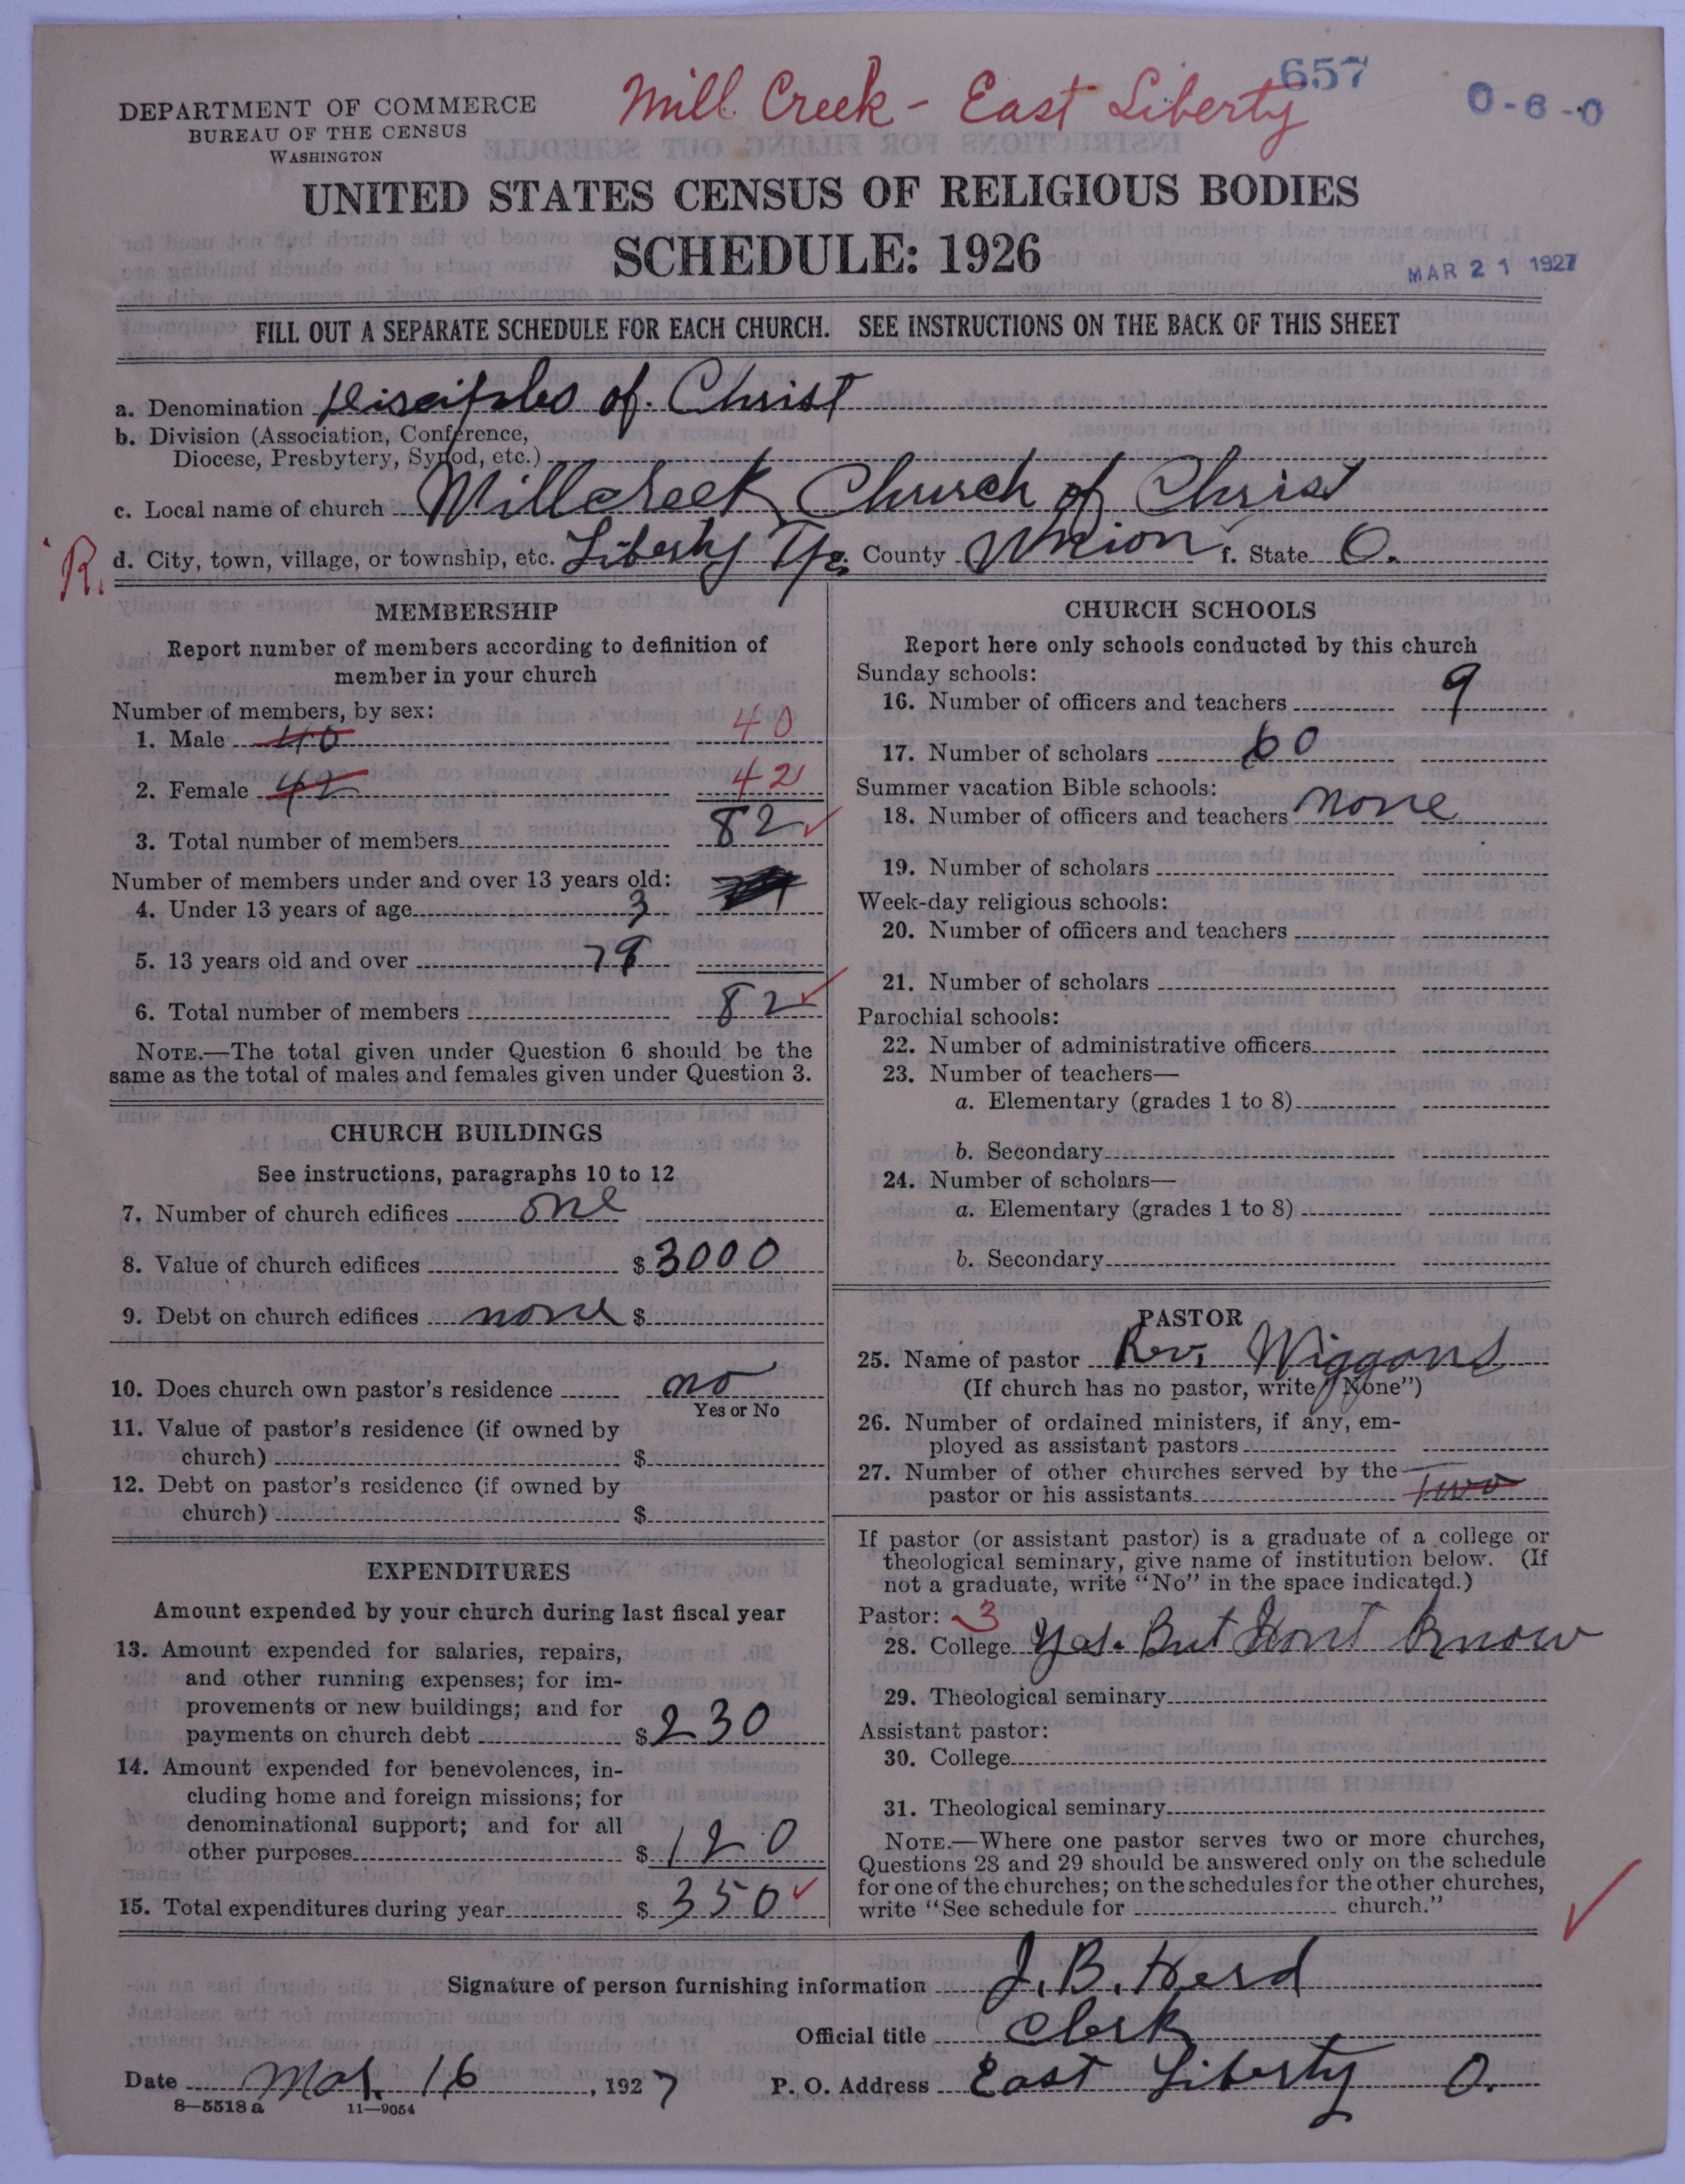 657
Mill Creek - East Liberty
0-6-0
DEPARTMENT OF COMMERCE
BUREAU OF THE CENSUS
WASHINGTON
UNITED STATES CENSUS OF RELIGIOUS BODIES
SCHEDULE: 1926
MAR 21 1927
FILL OUT A SEPARATE SCHEDULE FOR EACH CHURCH. SEE INSTRUCTIONS ON THE BACK OF THIS SHEET
a. Denomination Disciples of Christ
b. Division (Association, Conference,
Diocese, Presbytery, Synod, etc.)
c. Local name of church Millcreek Church of Christ
R. d. City, town, village, or township, etc. Liberty Tp. County Union f. State O.
MEMBERSHIP
Report number of members according to definition of
member in your church
Number of members, by sex:
1. Male 40 40
2. Female 42 42
3. Total number of members 82
Number of members under and over 13 years old:
4. Under 13 years of age 3
5. 13 years old and over 79
6. Total number of members 82
NOTE.—The total given under Question 6 should be the
same as the total of males and females given under Question 3.
CHURCH BUILDINGS
See instructions, paragraphs 10 to 12
7. Number of church edifices one
8. Value of church edifices $3000
9. Debt on church edifices none $
10. Does church own pastor's residence no
Yes or No
11. Value of pastor's residence (if owned by
church) $
12. Debt on pastor's residence (if owned by
church) $
EXPENDITURES
Amount expended by your church during last fiscal year
13. Amount expended for salaries, repairs,
and other running expenses; for im-
provements or new buildings; and for
payments on church debt $230
14. Amount expended for benevolences, in-
cluding home and foreign missions; for
denominational support; and for all
other purposes $120
15. Total expenditures during year $350
CHURCH SCHOOLS
Report here only schools conducted by this church
Sunday schools:
16. Number of officers and teachers 9
17. Number of scholars 60
Summer vacation Bible schools:
18. Number of officers and teachers none
19. Number of scholars
Week-day religious schools:
20. Number of officers and teachers
21. Number of scholars
Parochial schools:
22. Number of administrative officers
23. Number of teachers—
a. Elementary (grades 1 to 8)
b. Secondary
24. Number of scholars—
a. Elementary (grades 1 to 8)
b. Secondary
PASTOR
25. Name of pastor Rev. Wiggons
(If church has no pastor, write "None")
26. Number of ordained ministers, if any, em-
ployed as assistant pastors
27. Number of other churches served by the
pastor or his assistants two
If pastor (or assistant pastor) is a graduate of a college or
theological seminary, give name of institution below. (If
not a graduate, write "No" in the space indicated.)
Pastor: 3
28. College Yes. But Dont Know
29. Theological seminary
Assistant pastor:
30. College
31. Theological seminary
NOTE.—Where one pastor serves two or more churches,
Questions 28 and 29 should be answered only on the schedule
for one of the churches; on the schedules for the other churches,
write "See schedule for church."
Signature of person furnishing information J. B. Herd
Official title Clerk
Date Mar. 16, 1927 P. O. Address East Liberty O.
8—5518 a 11—9054